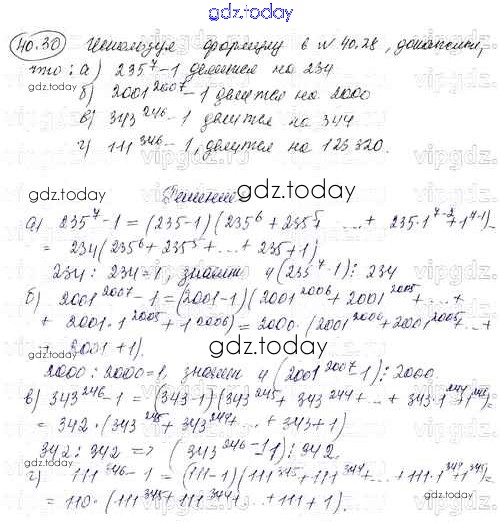 gdz.today
40.30 Используя формулу в № 40.28, докажите,
что: а) 235⁷-1 делится на 234
gdz.today
б) 2001²⁰⁰⁷-1 делится на 2000
в) 343²⁴⁶-1 делится на 344
gdz.today
г) 111³⁴⁶-1, делится на 123320.
Решение
gdz.today
а) 235⁷-1=(235-1)(235⁶+235⁵+ ... + 235·1⁷⁻²+1⁷⁻¹)=
= 234(235⁶+235⁵+...+ 235+1)
gdz.today
234 : 234=1, значит и (235⁷-1)⋮ 234
б) 2001²⁰⁰⁷-1=(2001-1)(2001²⁰⁰⁶+2001²⁰⁰⁵+...+
+ 2001·1²⁰⁰⁵+1²⁰⁰⁶)=2000·(2001²⁰⁰⁶+2001²⁰⁰⁵+...+
gdz.today
2001+1).
2000 : 2000=1, значит и (2001²⁰⁰⁷-1)⋮2000.
gdz.today
в) 343²⁴⁶-1 = (343-1)(343²⁴⁵+343²⁴⁴+...+ 343·1²⁴⁴+1²⁴⁵)=
= 342·(343²⁴⁵+343²⁴⁴+...+ 343+1)
gdz.today
342 ⋮ 342 => (343²⁴⁶-1)⋮342.
г) 111³⁴⁶-1 = (111-1)(111³⁴⁵+111³⁴⁴+...+ 111·1³⁴⁴+1³⁴⁵)=
gdz.today
= 110·(111³⁴⁵+111³⁴⁴+...+ 111+1).